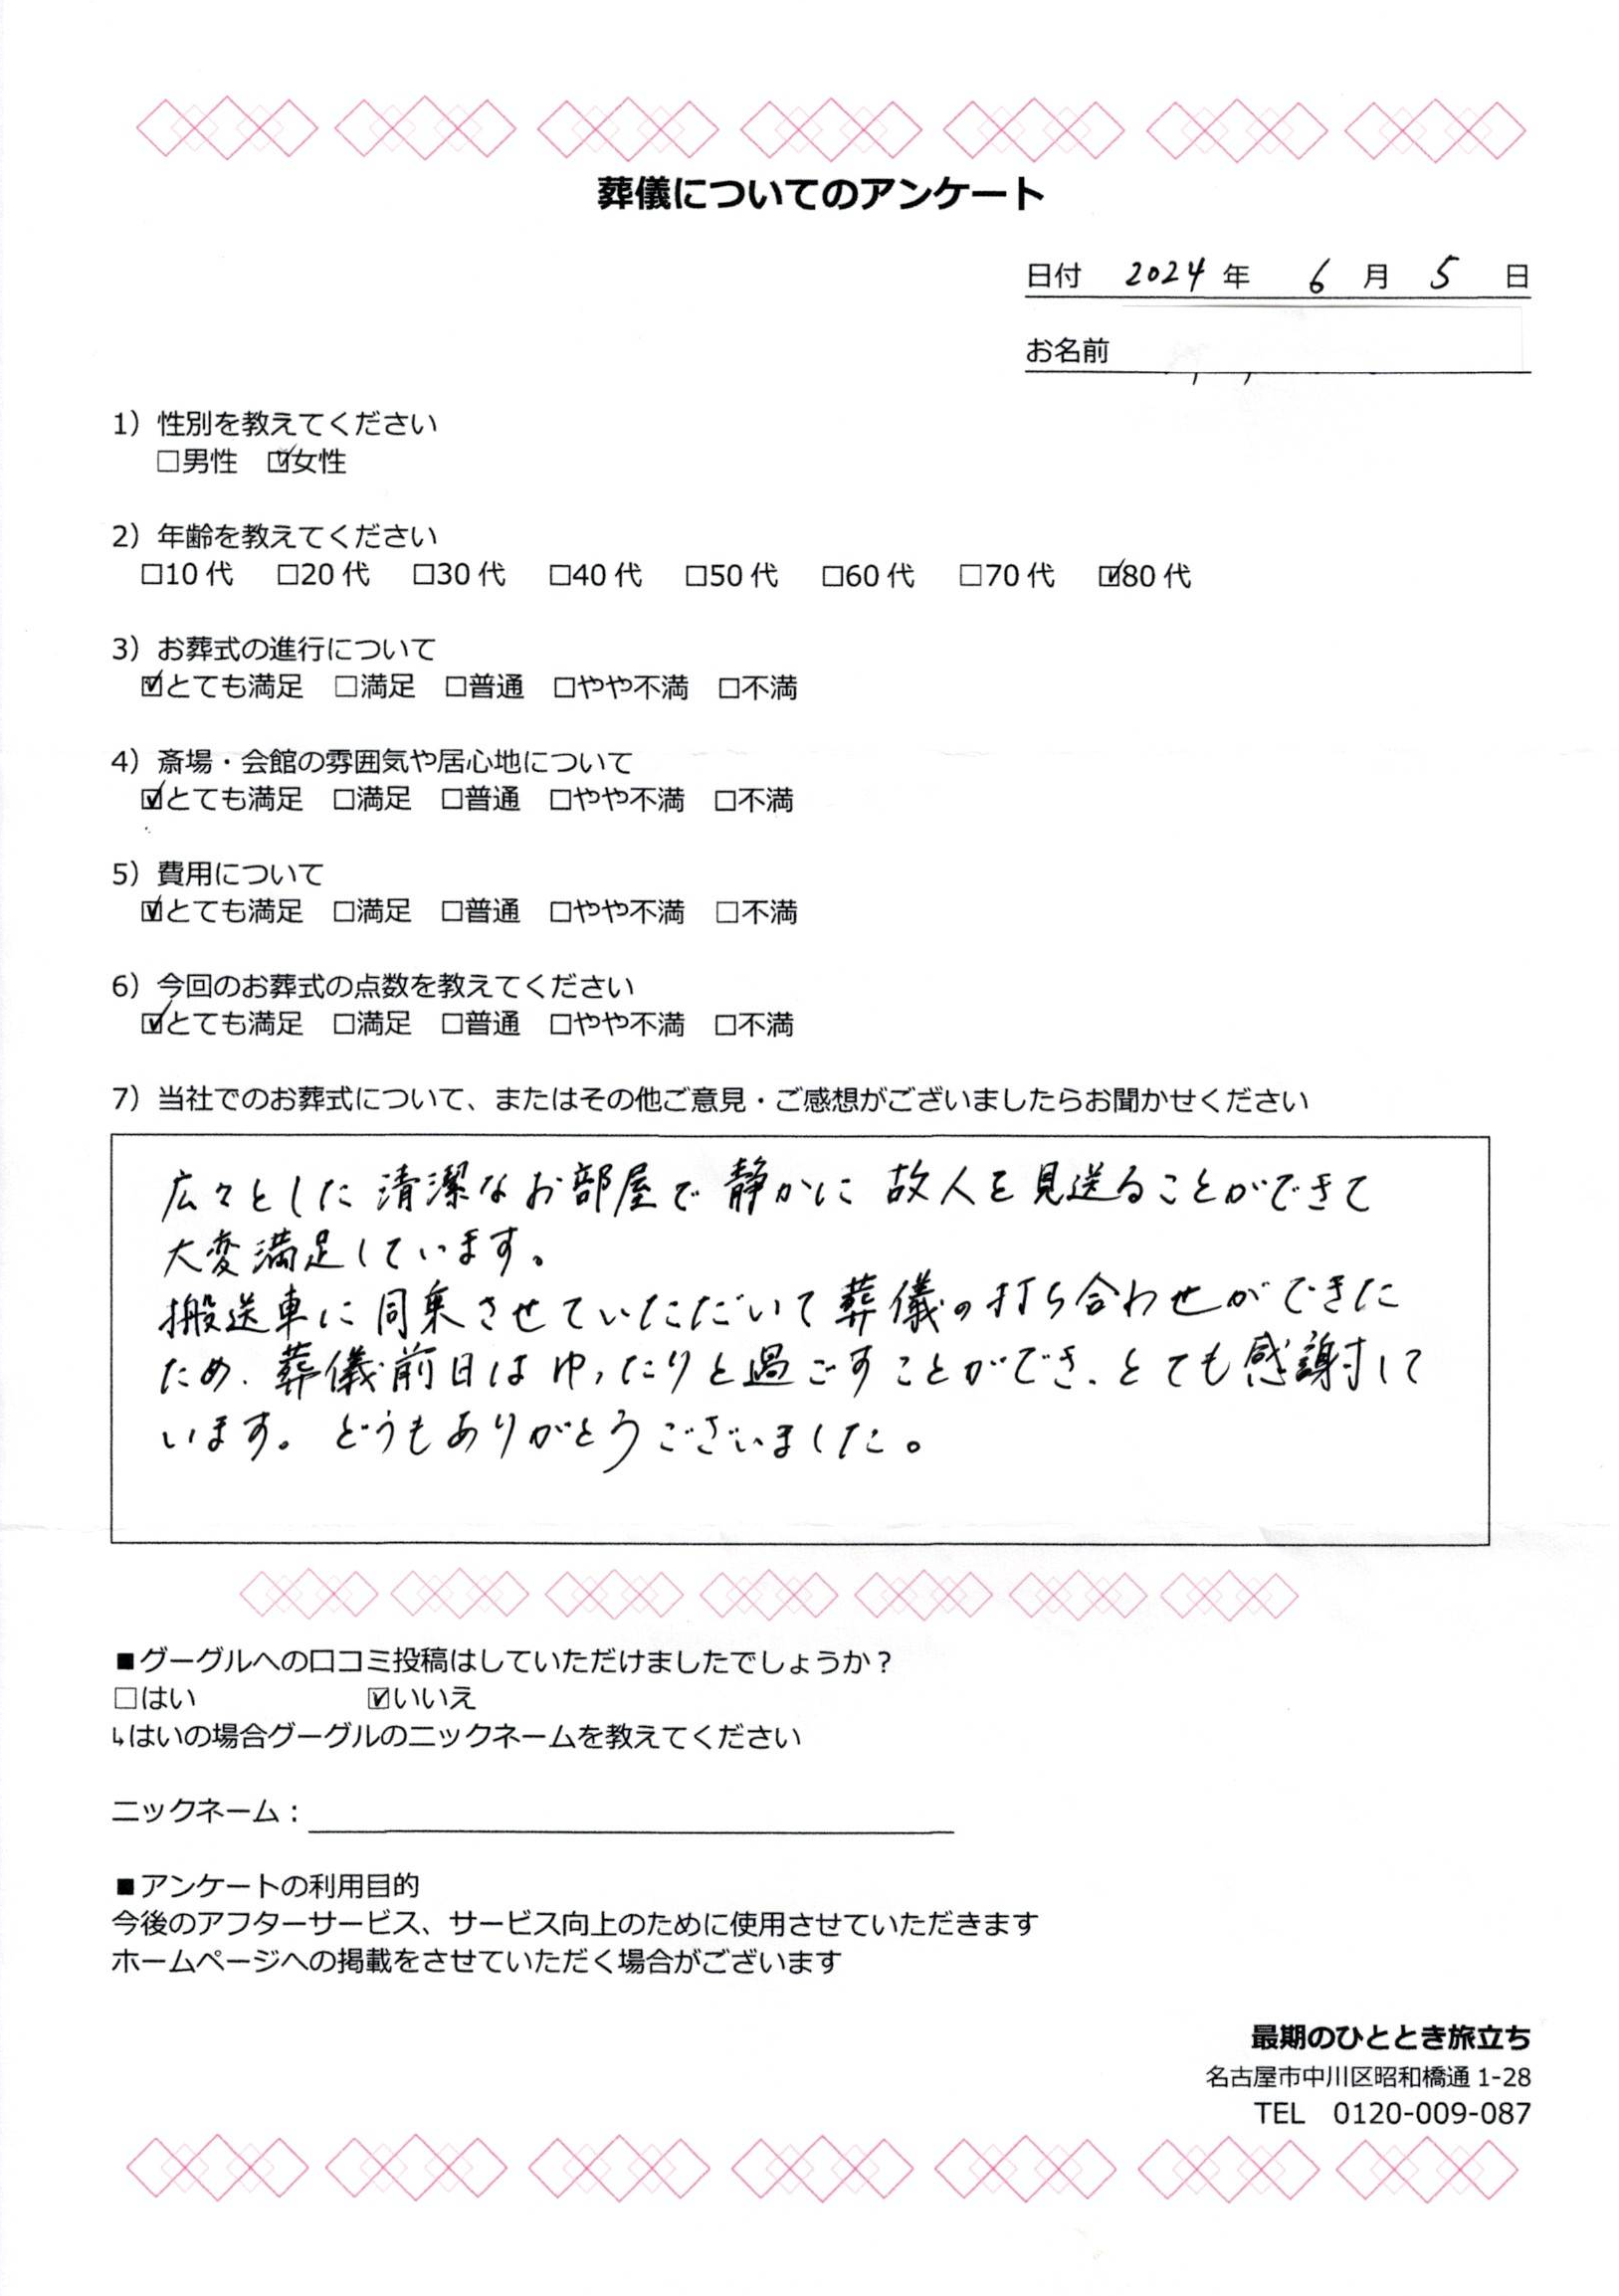 葬儀についてのアンケート
日付 2024 年 6 月 5 日
お名前
1）性別を教えてください
□男性 ☑女性
2）年齢を教えてください
□10代 □20代 □30代 □40代 □50代 □60代 □70代 ☑80代
3）お葬式の進行について
☑とても満足 □満足 □普通 □やや不満 □不満
4）斎場・会館の雰囲気や居心地について
☑とても満足 □満足 □普通 □やや不満 □不満
5）費用について
☑とても満足 □満足 □普通 □やや不満 □不満
6）今回のお葬式の点数を教えてください
☑とても満足 □満足 □普通 □やや不満 □不満
7）当社でのお葬式について、またはその他ご意見・ご感想がございましたらお聞かせください
広々とした清潔なお部屋で静かに故人を見送ることができて
大変満足しています。
搬送車に同乗させていただいて葬儀の打ち合わせができた
ため、葬儀前日はゆったりと過ごすことができ、とても感謝して
います。どうもありがとうございました。
■グーグルへの口コミ投稿はしていただけましたでしょうか？
□はい ☑いいえ
↳はいの場合グーグルのニックネームを教えてください
ニックネーム：
■アンケートの利用目的
今後のアフターサービス、サービス向上のために使用させていただきます
ホームページへの掲載をさせていただく場合がございます
最期のひととき旅立ち
名古屋市中川区昭和橋通1-28
TEL 0120-009-087